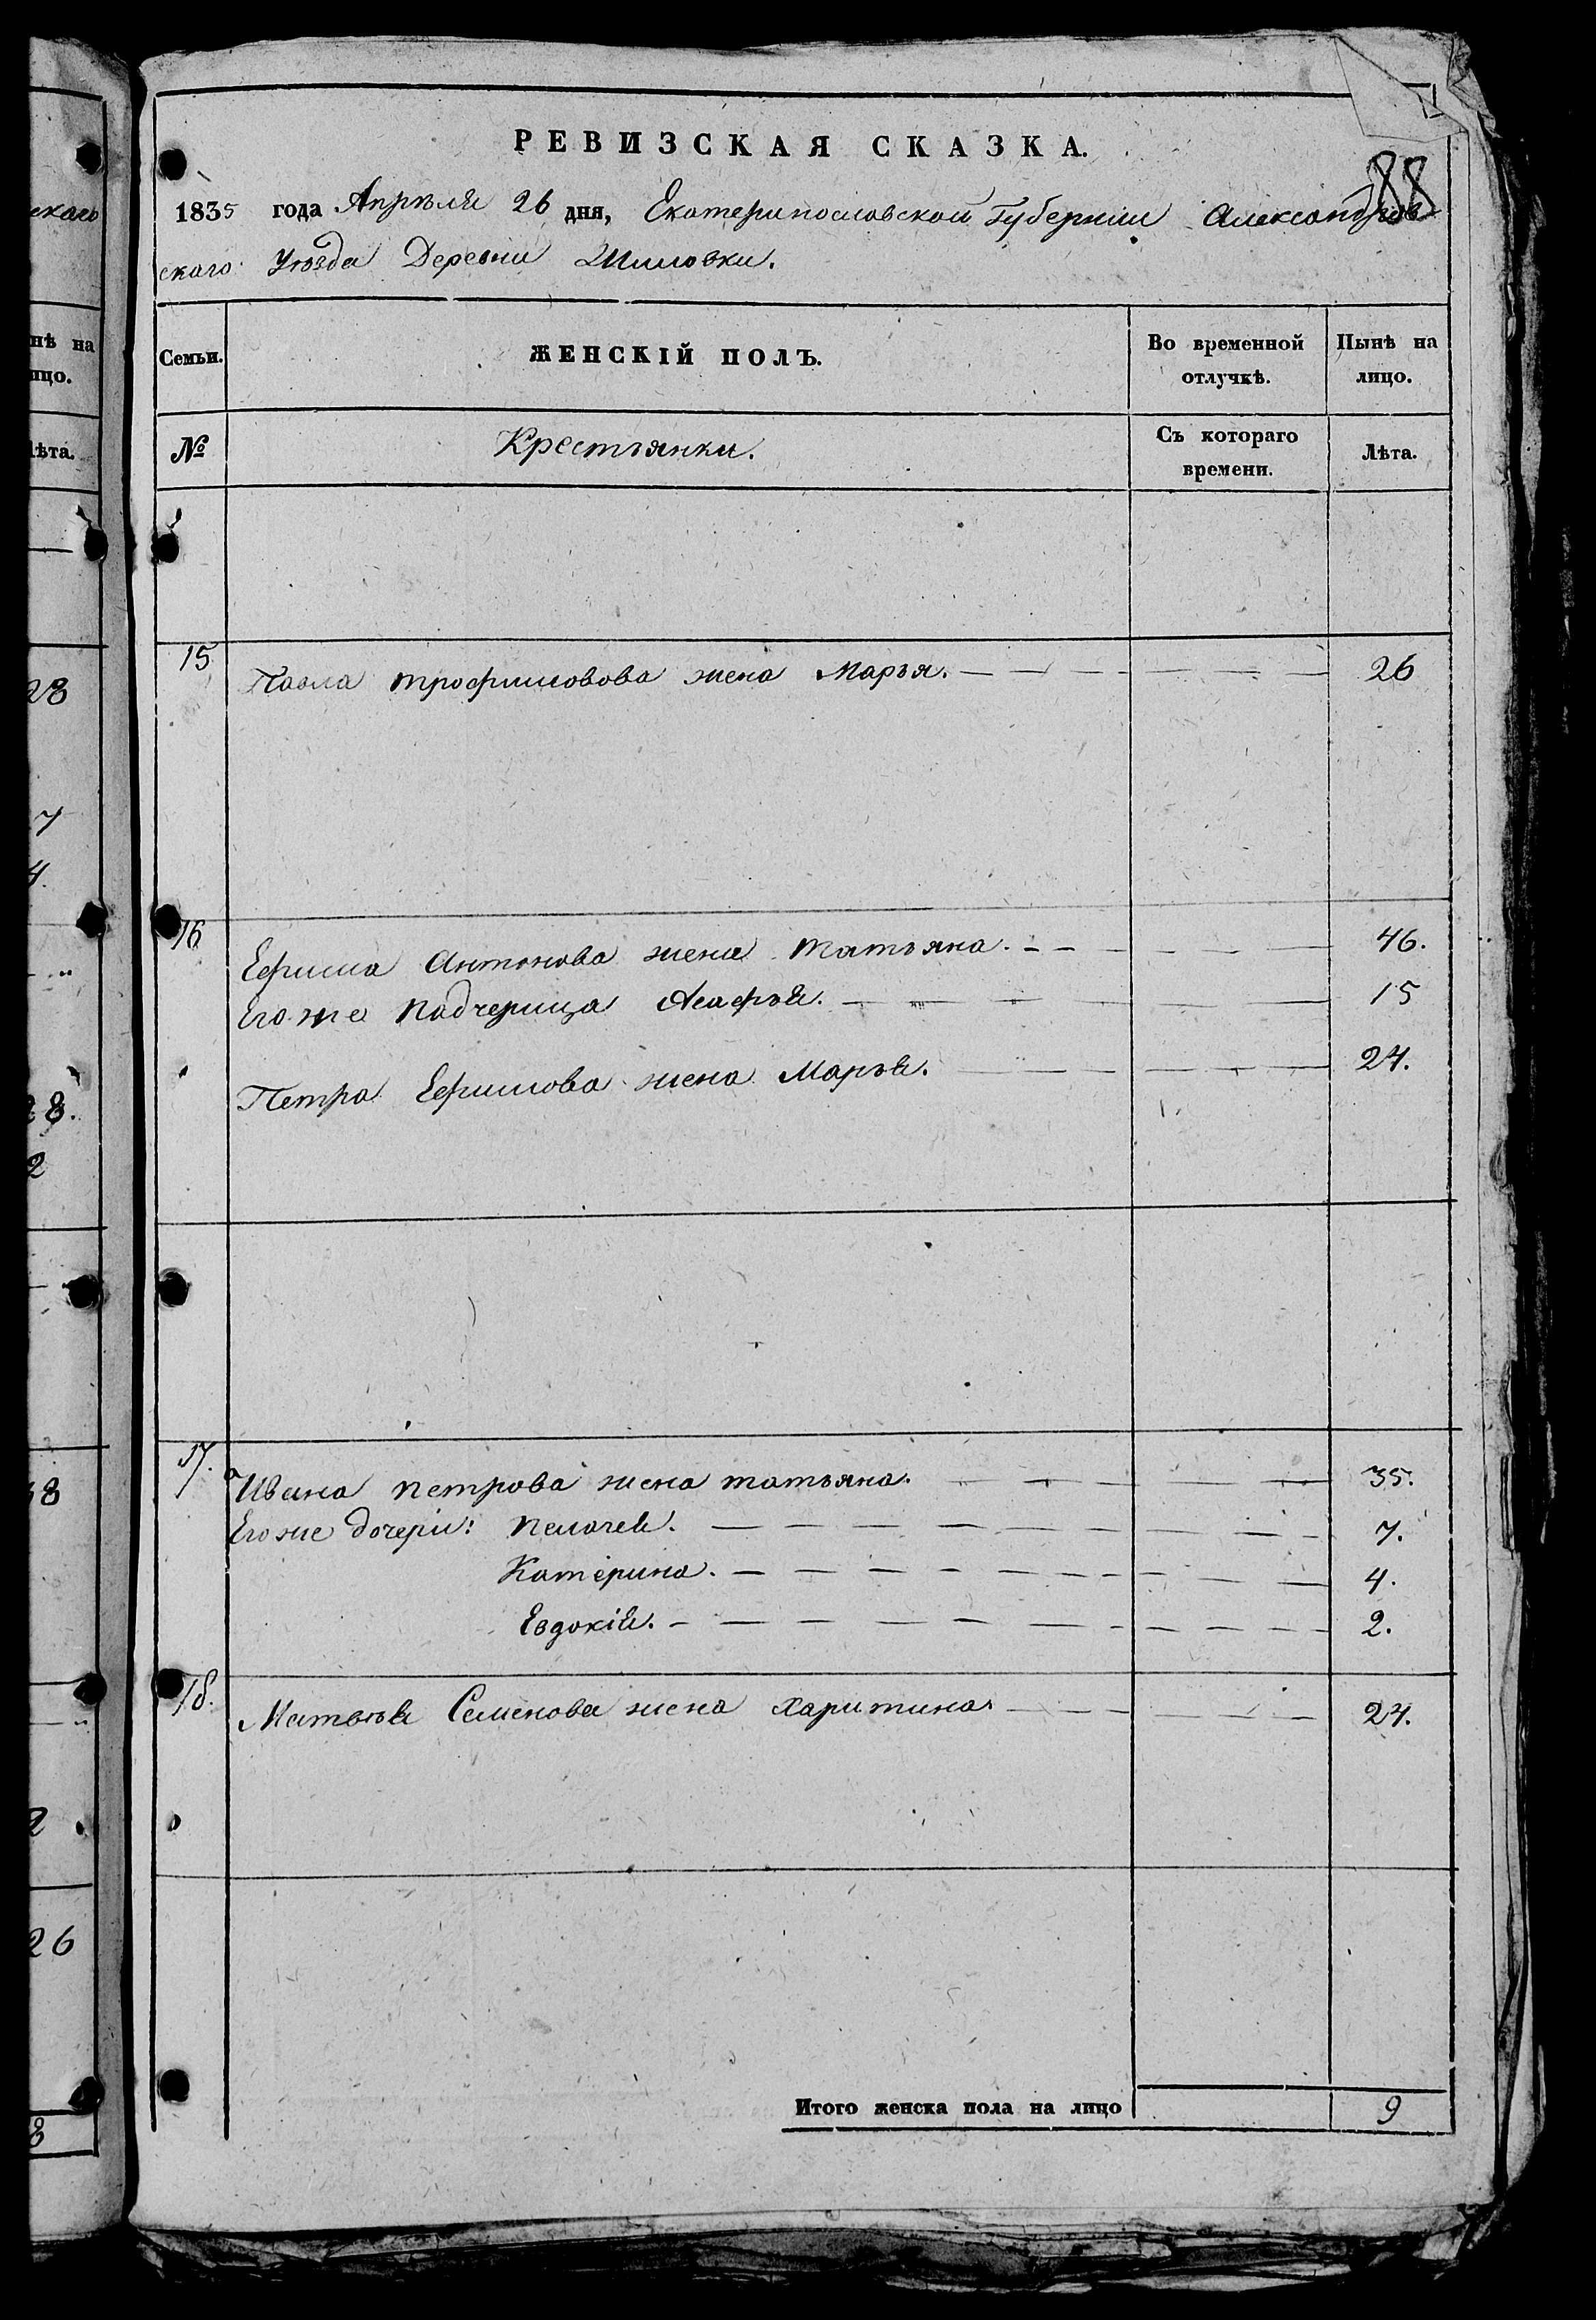 РЕВИЗСКАЯ СКАЗКА.
88
1835 года Апрѣля 26 дня, Екатеринославской Губерніи Александров
скаго Уѣзда Деревни Шиловки.
Семьи. ЖЕНСКІЙ ПОЛЪ. Во временной отлучкѣ. Нынѣ на лицо.
№ Крестьянки. Съ котораго времени. Лѣта.
15 Павла трофимовова жена Марья. 26
16 Ефима Антонова жена Татьяна. 46.
Его же Падчерица Агафья. 15
Петра Ефимова жена Марья. 24.
17. Ивана Петрова жена татьяна. 35.
Его же дочери: Пелагея. 7.
Катерина. 4.
Евдокія. 2.
18. Матвѣя Семенова жена Харитина 24.
Итого женска пола на лицо 9
скаго
нѣ на
ицо.
лѣта.
28
7
4.
28.
2
8
2
26
8